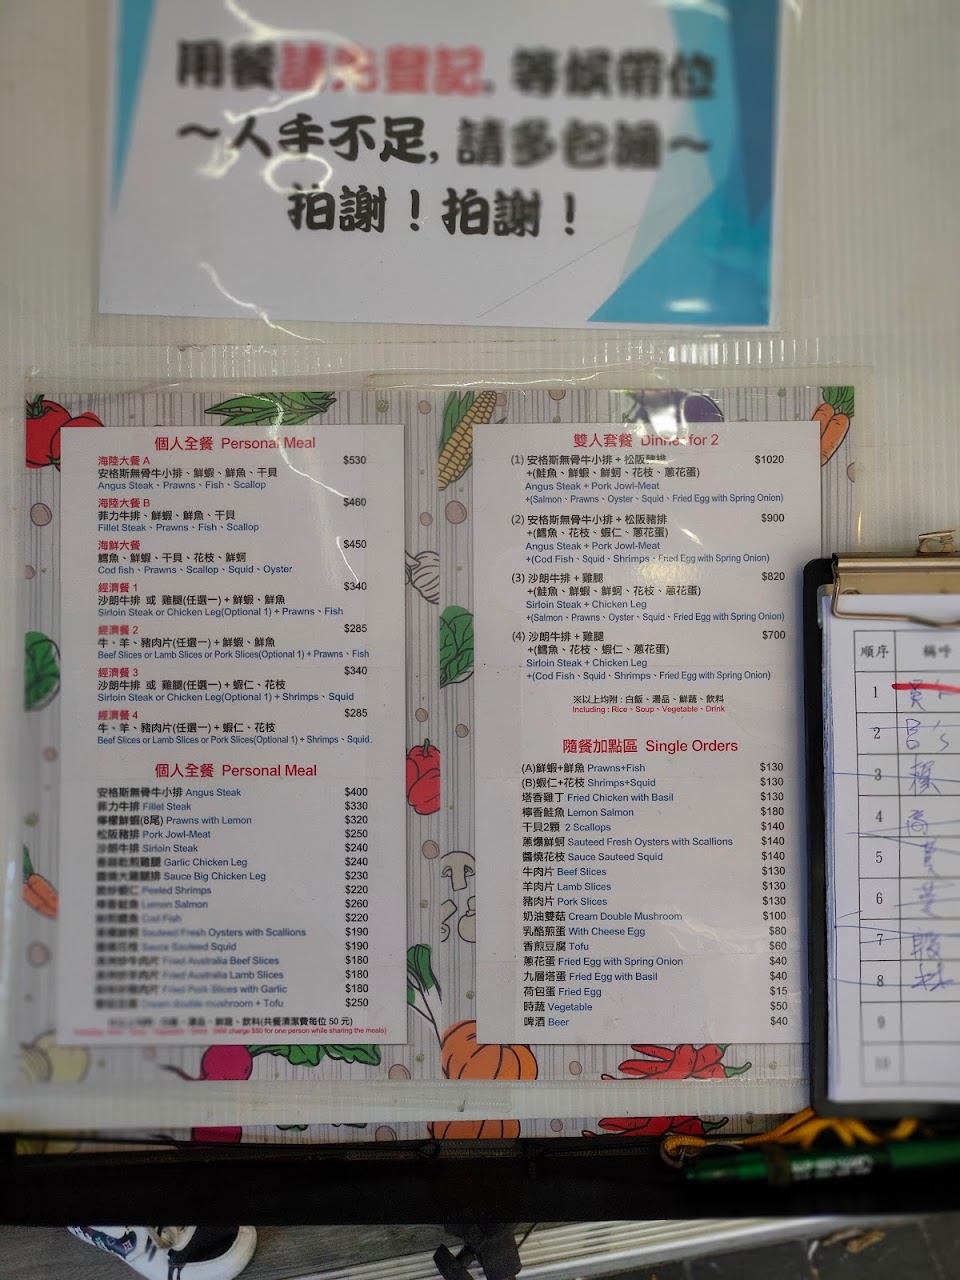 用餐請先登記, 等候帶位
～人手不足, 請多包涵～
拍謝！拍謝！
個人全餐 Personal Meal
海陸大餐 A $530
安格斯無骨牛小排、鮮蝦、鮮魚、干貝
Angus Steak、Prawns、Fish、Scallop
海陸大餐 B $460
菲力牛排、鮮蝦、鮮魚、干貝
Fillet Steak、Prawns、Fish、Scallop
海鮮大餐 $450
鱈魚、鮮蝦、干貝、花枝、鮮蚵
Cod fish、Prawns、Scallop、Squid、Oyster
經濟餐 1 $340
沙朗牛排 或 雞腿(任選一) + 鮮蝦、鮮魚
Sirloin Steak or Chicken Leg(Optional 1) + Prawns、Fish
經濟餐 2 $285
牛、羊、豬肉片(任選一) + 鮮蝦、鮮魚
Beef Slices or Lamb Slices or Pork Slices(Optional 1) + Prawns、Fish
經濟餐 3 $340
沙朗牛排 或 雞腿(任選一) + 蝦仁、花枝
Sirloin Steak or Chicken Leg(Optional 1) + Shrimps、Squid
經濟餐 4 $285
牛、羊、豬肉片(任選一) + 蝦仁、花枝
Beef Slices or Lamb Slices or Pork Slices(Optional 1) + Shrimps、Squid.
個人全餐 Personal Meal
安格斯無骨牛小排 Angus Steak $400
菲力牛排 Fillet Steak $330
檸檬鮮蝦(8尾) Prawns with Lemon $320
松阪豬排 Pork Jowl-Meat $250
沙朗牛排 Sirloin Steak $240
香蒜乾煎雞腿 Garlic Chicken Leg $240
醬燒大雞腿排 Sauce Big Chicken Leg $230
蝦仁 Peeled Shrimps $220
檸香鮭魚 Lemon Salmon $260
鱈魚 Cod Fish $220
Sauteed Fresh Oysters with Scallions $190
花枝 Sauce Sauteed Squid $190
Fried Australia Beef Slices $180
Fried Australia Lamb Slices $180
Fried Pork Slices with Garlic $180
Cream double mushroom + Tofu $250
湯品、鮮蔬、飲料(共餐清潔費每位 50 元)
(Will charge $50 for one person while sharing the meals)
雙人套餐 Dinner for 2
(1) 安格斯無骨牛小排 + 松阪豬排 $1020
+(鮭魚、鮮蝦、鮮蚵、花枝、蔥花蛋)
Angus Steak + Pork Jowl-Meat
+(Salmon、Prawns、Oyster、Squid、Fried Egg with Spring Onion)
(2) 安格斯無骨牛小排 + 松阪豬排 $900
+(鱈魚、花枝、蝦仁、蔥花蛋)
Angus Steak + Pork Jowl-Meat
+(Cod Fish、Squid、Shrimps、Fried Egg with Spring Onion)
(3) 沙朗牛排 + 雞腿 $820
+(鮭魚、鮮蝦、鮮蚵、花枝、蔥花蛋)
Sirloin Steak + Chicken Leg
+(Salmon、Prawns、Oyster、Squid、Fried Egg with Spring Onion)
(4) 沙朗牛排 + 雞腿 $700
+(鱈魚、花枝、蝦仁、蔥花蛋)
Sirloin Steak + Chicken Leg
+(Cod Fish、Squid、Shrimps、Fried Egg with Spring Onion)
※以上均附 : 白飯、湯品、鮮蔬、飲料
Including : Rice、Soup、Vegetable、Drink
隨餐加點區 Single Orders
(A)鮮蝦+鮮魚 Prawns+Fish $130
(B)蝦仁+花枝 Shrimps+Squid $130
塔香雞丁 Fried Chicken with Basil $130
檸香鮭魚 Lemon Salmon $180
干貝2顆 2 Scallops $140
蔥爆鮮蚵 Sauteed Fresh Oysters with Scallions $140
醬燒花枝 Sauce Sauteed Squid $140
牛肉片 Beef Slices $130
羊肉片 Lamb Slices $130
豬肉片 Pork Slices $130
奶油雙菇 Cream Double Mushroom $100
乳酪煎蛋 With Cheese Egg $80
香煎豆腐 Tofu $60
蔥花蛋 Fried Egg with Spring Onion $40
九層塔蛋 Fried Egg with Basil $40
荷包蛋 Fried Egg $15
時蔬 Vegetable $50
啤酒 Beer $40
順序 稱呼
1
2 B's
3
4
5
6
7
8 林
9
10